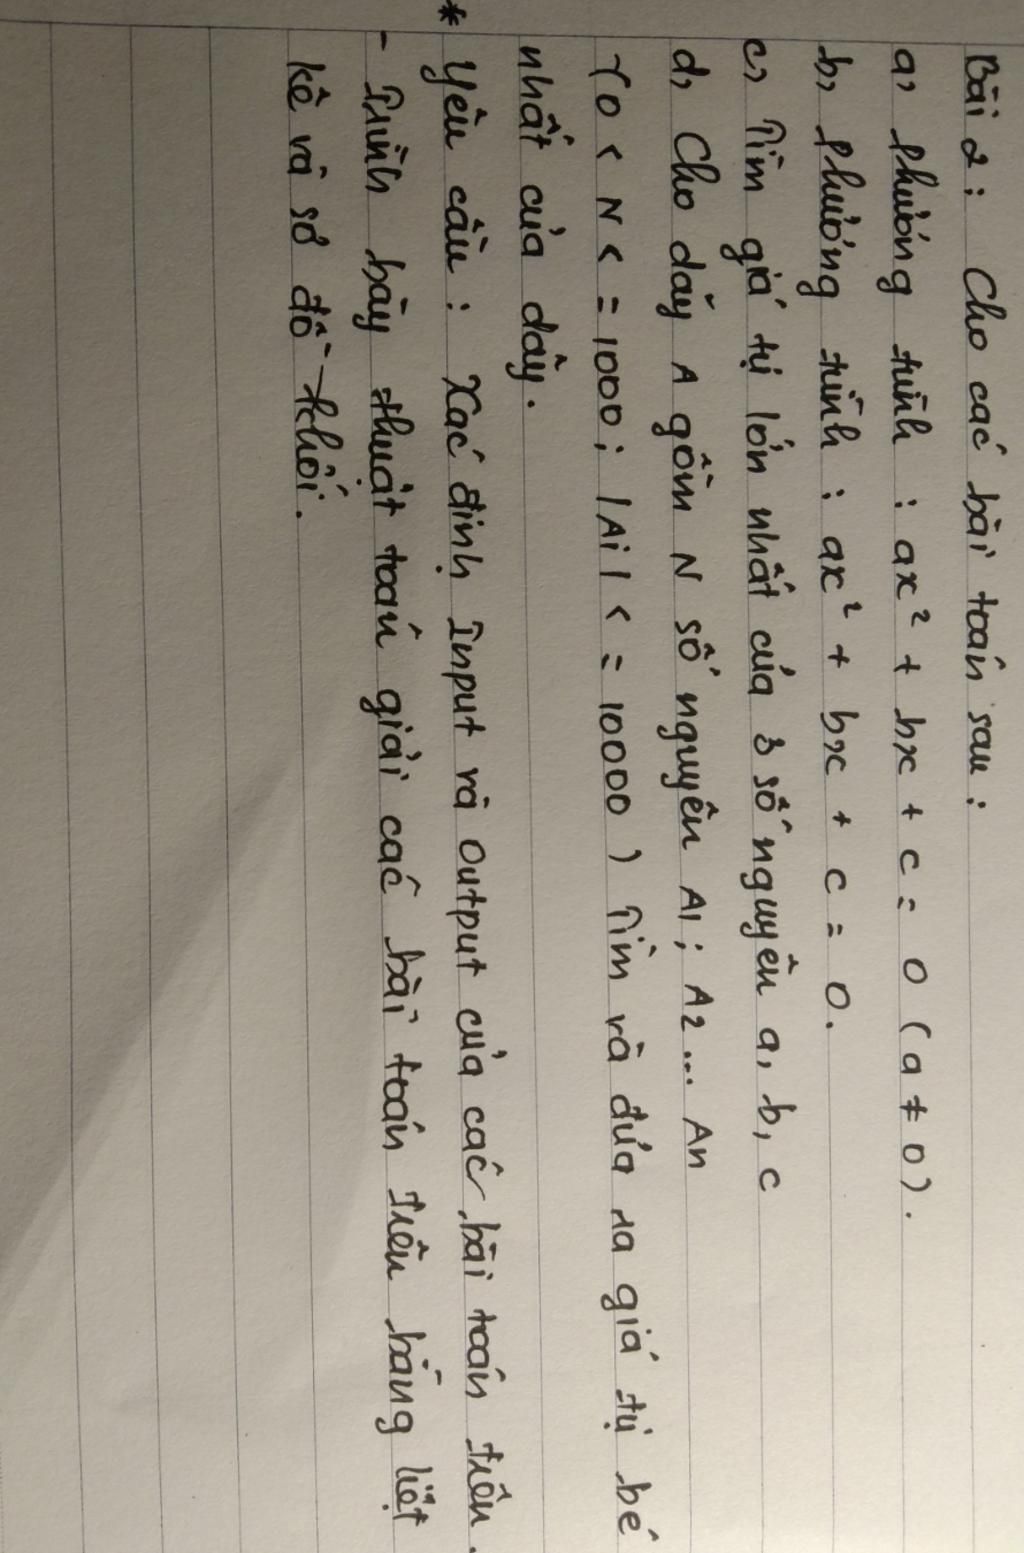 Bài 2: Cho các bài toán sau:
a, Phương trình: ax² + bx + c = 0 (a ≠ 0).
b, Phương trình: ax² + bx + c = 0.
c, Tìm giá trị lớn nhất của 3 số nguyên a, b, c
d, Cho dãy A gồm N số nguyên A1; A2... An
(0 < N <= 1000; |Ai| <= 10000) Tìm và đưa ra giá trị bé
nhất của dãy.
* Yêu cầu: Xác định Input và Output của các bài toán trên.
- Trình bày thuật toán giải các bài toán trên bằng liệt
kê và sơ đồ khối.